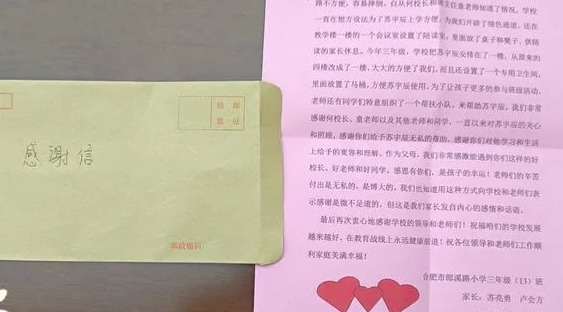 感谢信
贴邮
票处
邮政编码
路不方便，容易摔倒，自从何校长和班主任童老师知道了情况，学校
一直在想方设法为了苏宇辰上学方便，为我们开辟了绿色通道，还在
教学楼一楼的一个会议室设置了陪读室，里面放了桌子和凳子，供陪
读的家长休息，今年三年级，学校把苏宇辰安排在了一楼，从原来的
四楼改成了一楼，大大的方便了我们，而且还设置了一个专用卫生间，
里面放置了马桶，方便苏宇辰使用，为了让孩子更多的参与班级活动，
老师还有同学们特意组织了一个帮扶小队，来帮助苏宇辰，我们非常
感谢何校长、童老师以及其他老师和同学，一直以来对苏宇辰的关心
和照顾，感谢你们给予苏宇辰无私的帮助，感谢你们对他学习和生活
上给予的宽容和理解。作为父母，我们非常感激能遇到你们这样的好
校长，好老师和好同学，感恩有你们，是孩子的幸运！老师们的辛苦
付出是无私的，是博大的，我们也知道用这种方式向学校和老师们表
示感谢是微不足道的，但这是我们家长发自内心的感情和话语。
最后再次衷心地感谢学校的领导和老师们！祝福咱们的学校发展
越来越好，在教育战线上永远健康前进！祝各位领导和老师们工作顺
利家庭美满幸福！
合肥市郎溪路小学三年级（13）班
家长：苏亮勇 卢会方